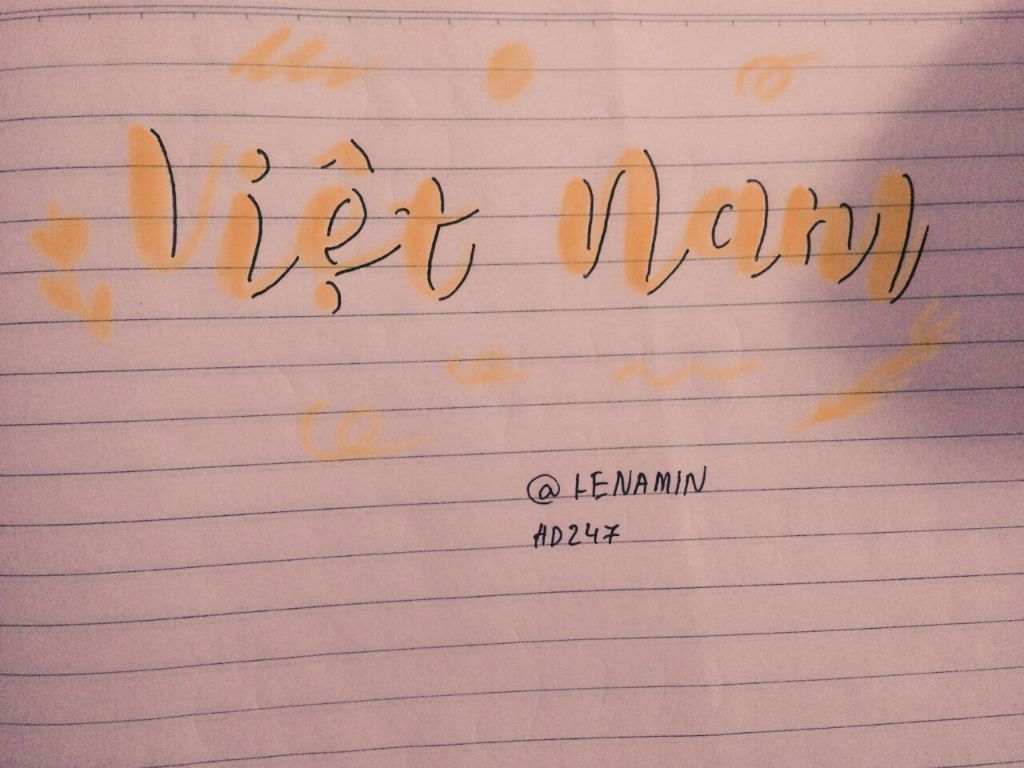 Việt Nam
@ LENAMIN
AD247